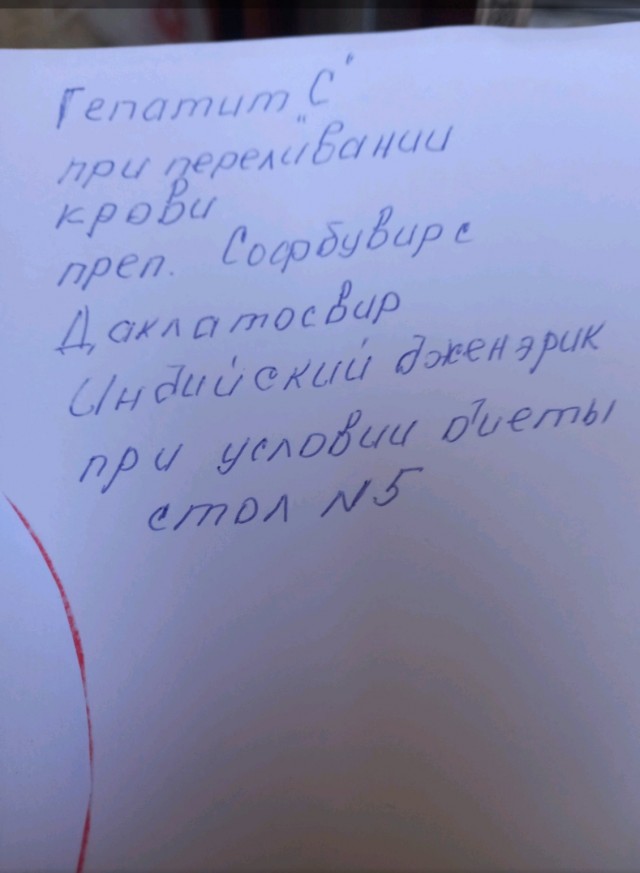 Гепатит "С"
при переливании
крови
преп. Софбувир с
Даклатосвир
Индийский дженэрик
при условии диеты
стол N5